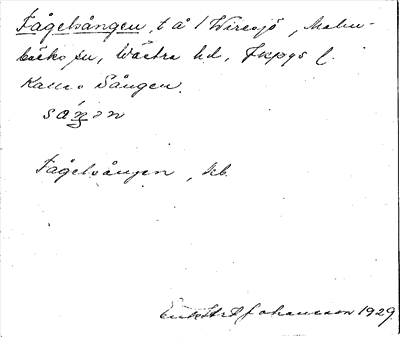 Fågelsången, t å 1 Wiresjö, Malm-
bäcks sn, Wästra hd, Jkpgs l.
Kallas Sången.
såŋən
Fågelsången, kb.
Johansson 1929